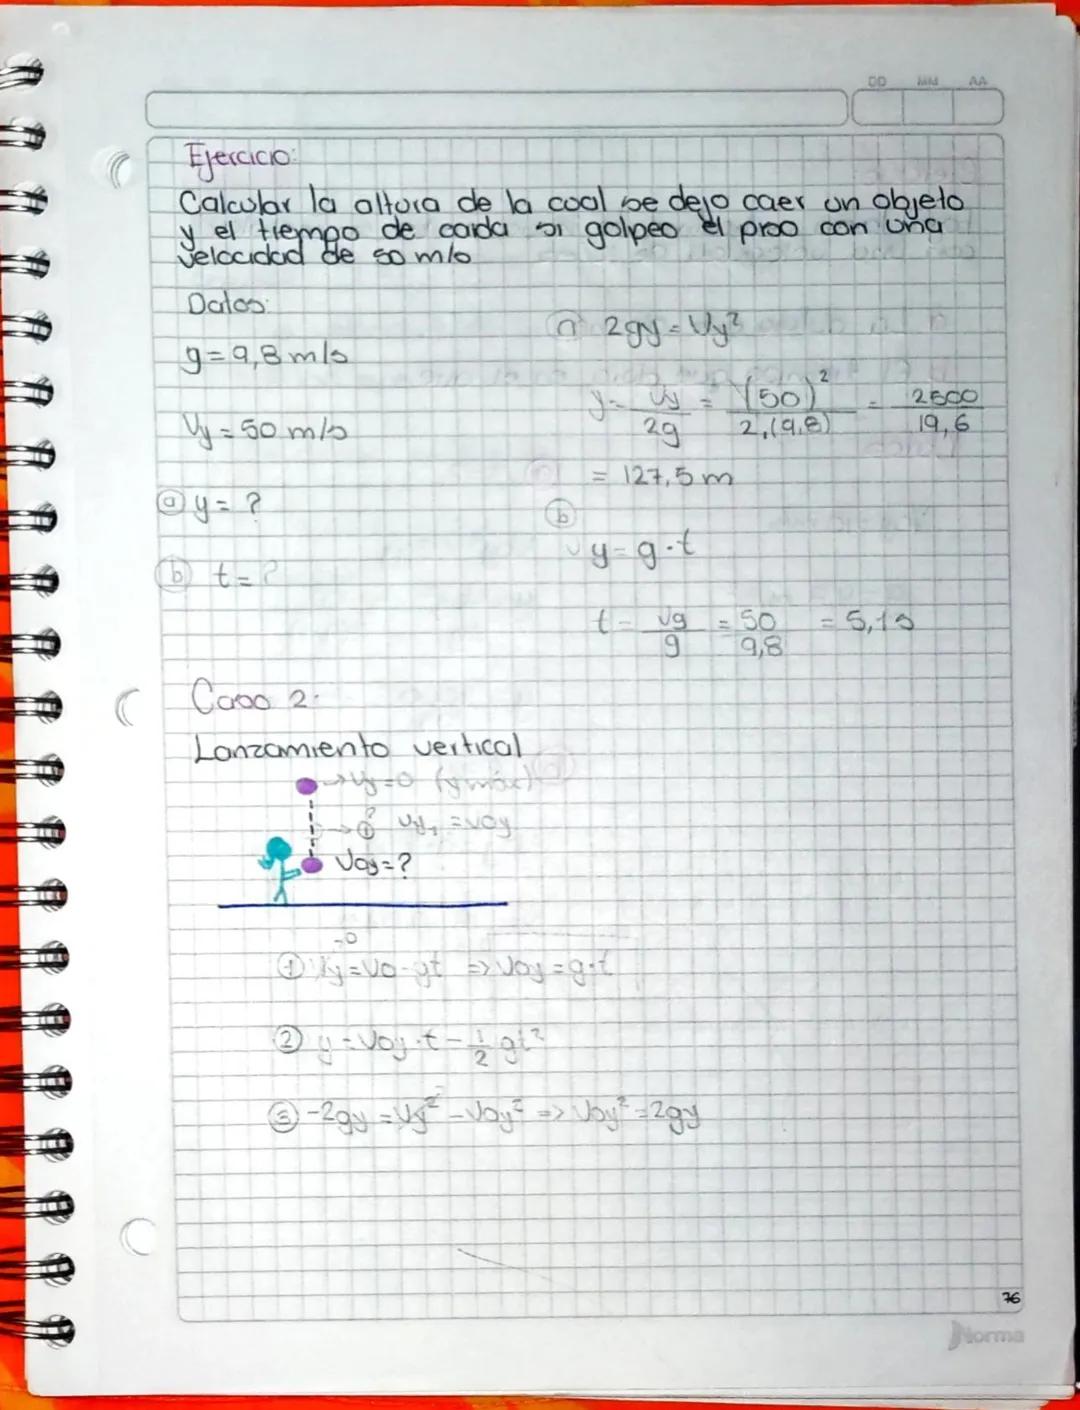 DD MM AA
Ejercicio:
Calcular la altura de la cual se dejo caer un objeto
y el tiempo de caida si golpeo el piso con una
velocidad de 50 m/s
Datos:
g = 9,8 m/s
Vy = 50 m/s
ⓐ y = ?
ⓑ t = ?
ⓐ 2gy = Vy²
y = Vy / 2g = (50)² / 2.(9.8) = 2500 / 19,6
= 127,5 m
ⓑ
vy = g·t
t = vg / g = 50 / 9,8 = 5,1 s
Caso 2:
Lanzamiento vertical
→ Vy = 0 (y máx)
→ ① vy₁ = voy
Voy = ?
=0
① Vy = Vo - gt => Voy = g·t
② y = Voy·t - 1/2 gt²
③ -2gy = Vy² - Voy² => Voy² = 2gy
76
Norma